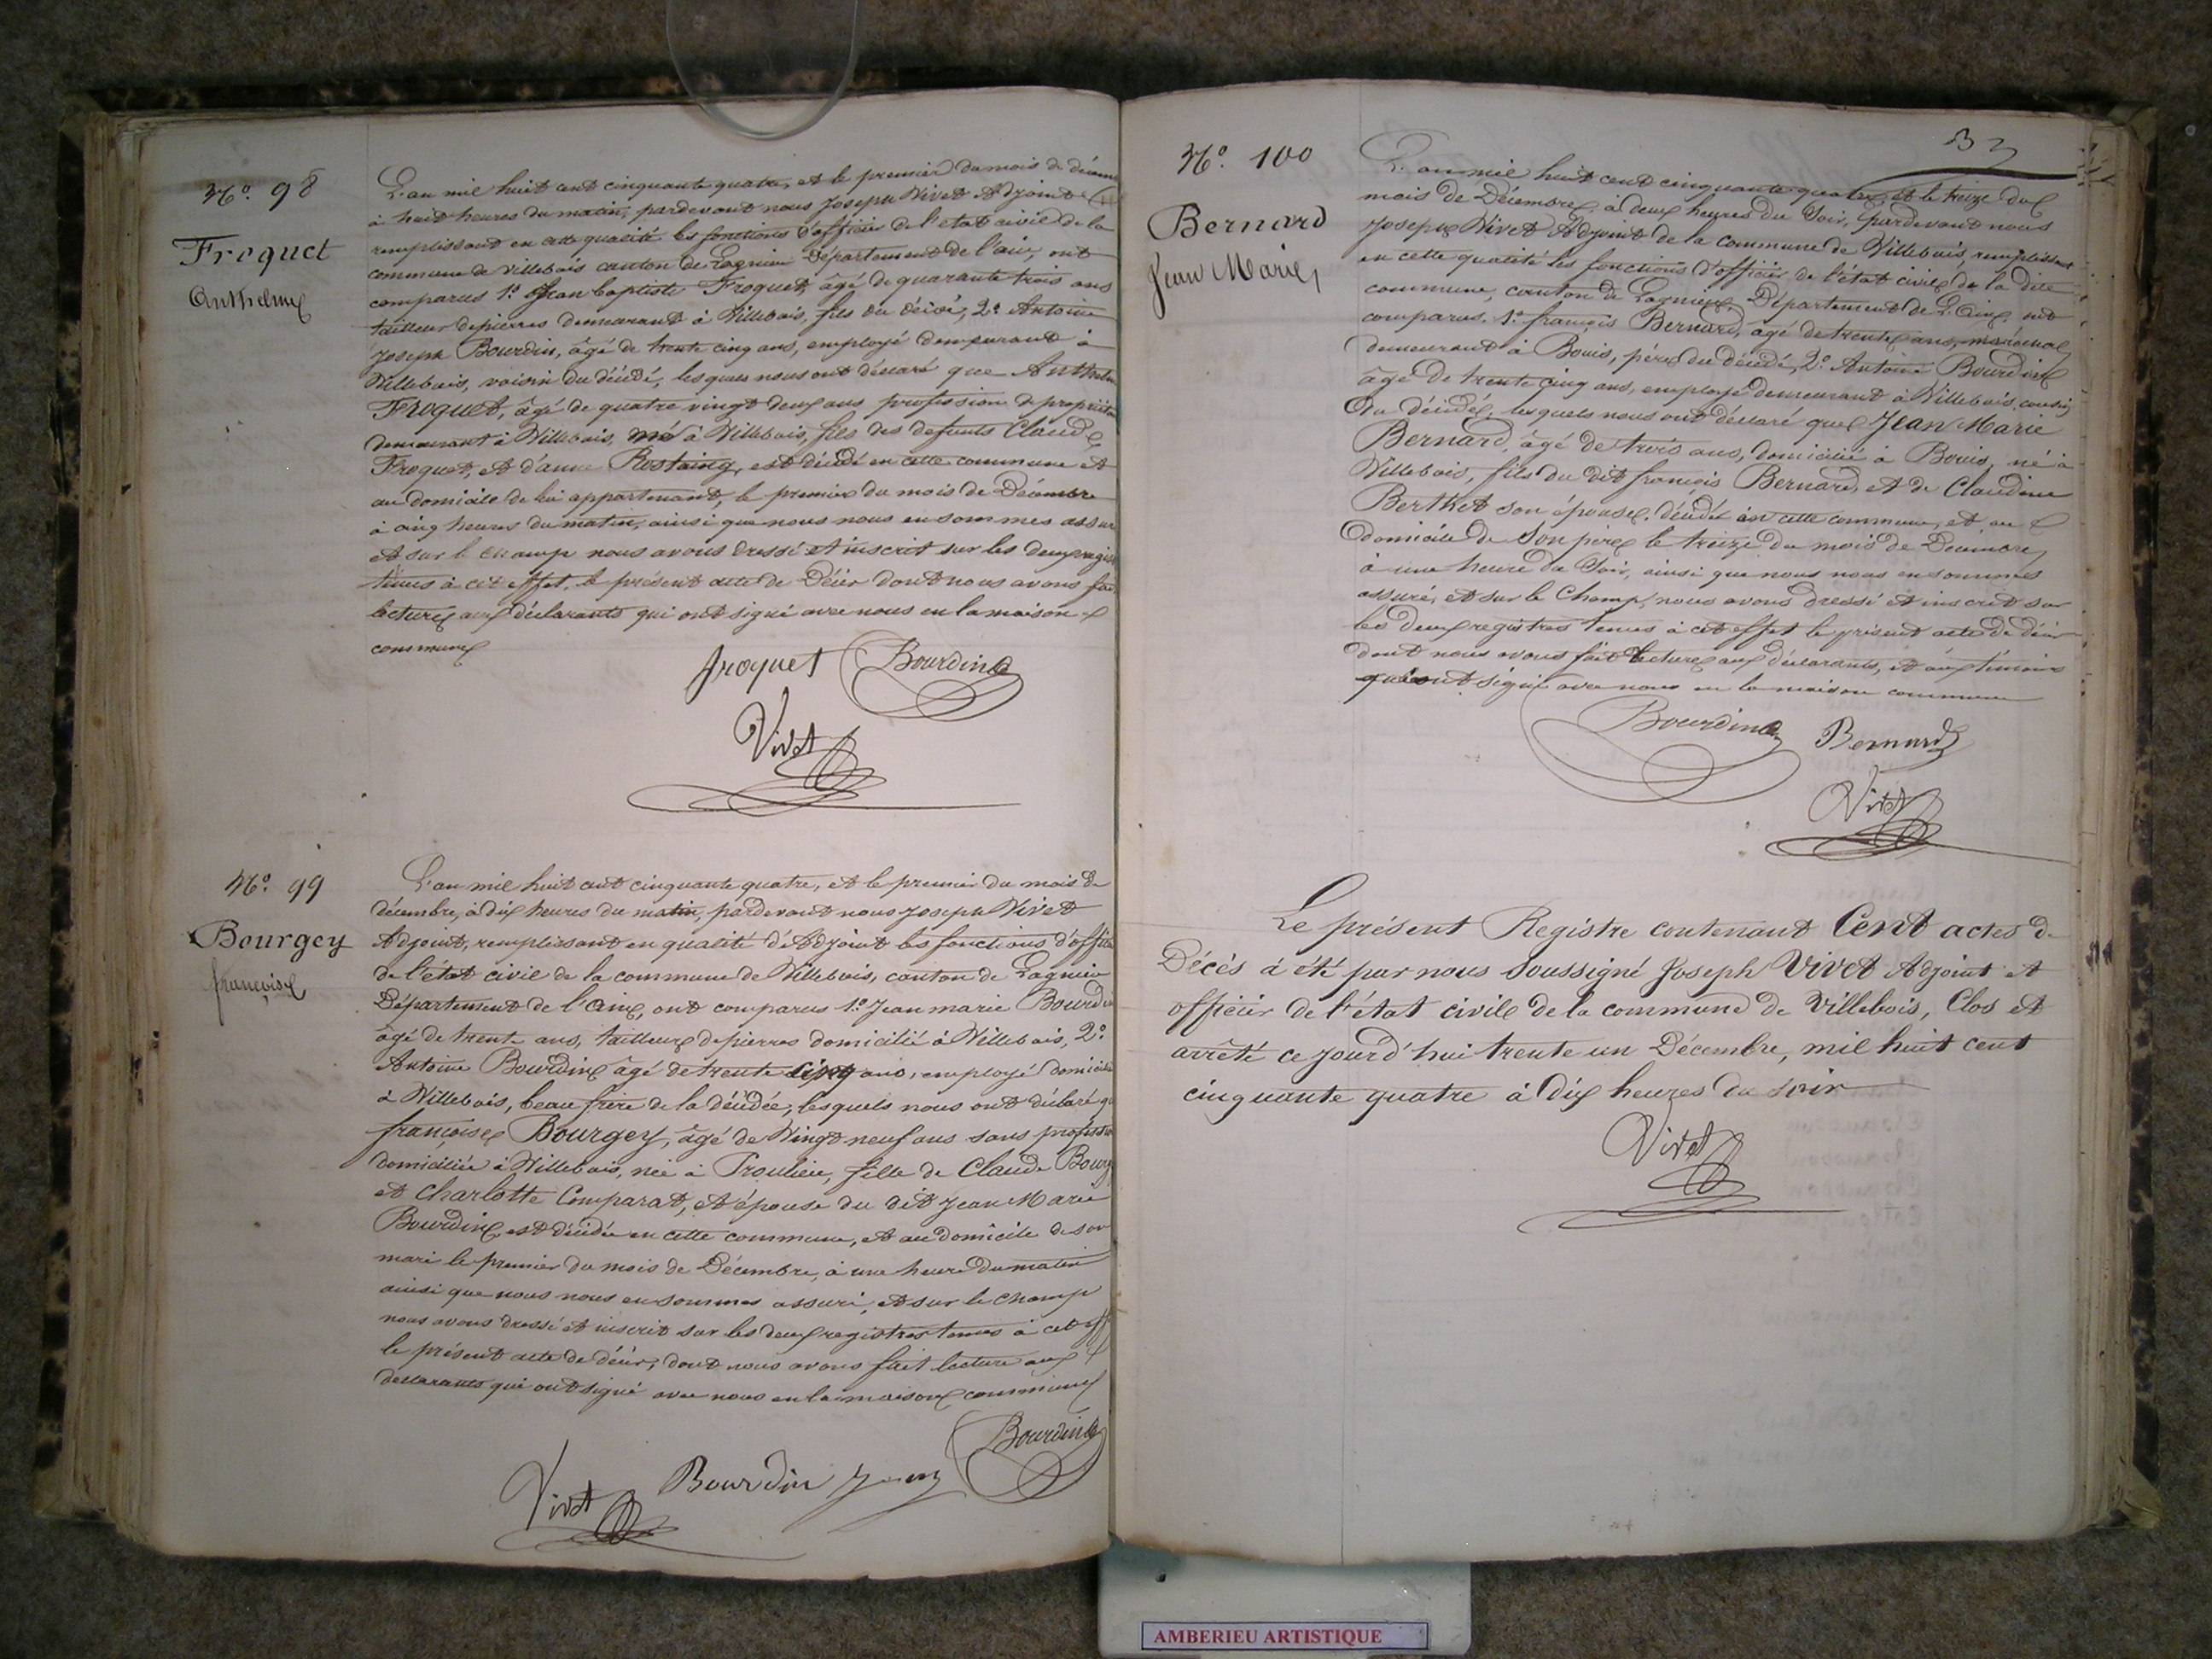 N.º 98
Froquet
Anthelme
L'an mil huit cent cinquante quatre, et le premier du mois de décem
à huit heures du matin, pardevant nous Joseph Vivet Adjoint
remplissant en cette qualité les fonctions d'officier de l'état civil de la
commune de Villebois canton de Lagnieu Département de l'ain, ont
comparus 1.º Jean Baptiste Froquet, âgé de quarante trois ans
tailleur de pierres demeurant à Villebois, fils du décédé, 2.º Antoine
Joseph Bourdin, âgé de trente cinq ans, employé demeurant à
Villebois, voisin du décédé, lesquels nous ont déclaré que Anthelm
Froquet, âgé de quatre vingt deux ans profession de propriétai
demeurant à Villebois, né à Villebois, fils des defunts Claude
Froquet, et d'anne Rostaing, est décédé en cette commune et
au domicile de lui appartenant, le premier du mois de Décembre
à cinq heures du matin, ainsi que nous nous en sommes assur
et sur le champ nous avons dressé et inscrit sur les deux regis
tenus à cet effet, le présent acte de Décès dont nous avons fai
lecture aux déclarants qui ont signé avec nous en la maison
commune
froquet Bourdin
Vivet
N.º 99
Bourgey
françoise
L'an mil huit cent cinquante quatre, et le premier du mois de
décembre, à dix heures du matin, pardevant nous Joseph Vivet
Adjoint, remplissant en qualité d'Adjoint les fonctions d'offici
de l'état civil de la commune de Villebois, canton de Lagnieu
Département de l'Ain, ont comparus 1.º Jean marie Bourdin
âgé de trente ans, tailleur de pierres domicilié à Villebois, 2.º
Antoine Bourdin âgé de trente cinq ans, employé domicilié
à Villebois, beau frère de la décédée, lesquels nous ont déclaré q
françoise Bourgey, âgé de Vingt neuf ans sans professi
domiciliée à Villebois, née à Proulieu, fille de Claude Bourg
et Charlotte Comparat, et épouse du dit Jean Marie
Bourdin, est décédée en cette commune, et au domicile de son
mari le premier du mois de Décembre, à une heure du matin
ainsi que nous nous en sommes assuré, et sur le champ
nous avons dressé et inscrit sur les deux registres tenus à cet eff
le présent acte de décès, dont nous avons fait lecture aux
déclarants qui ont signé avec nous en la maison commune
Vivet Bourdin Jean Bourdin
N.º 100
Bernard
Jean Marie
L'an mil huit cent cinquante quatre, et le treize du
mois de Décembre, à deux heures du Soir, pardevant nous
Joseph Vivet Adjoint de la commune de Villebois, remplissant
en cette qualité les fonctions d'officier de l'état civil de la dite
commune, canton de Lagnieu, Département de L'Ain, ont
comparus. 1.º françois Bernard, âgé de trente ans, maréchal
demeurant à Bouis, père du décédé, 2.º Antoine Bourdin
âgé de trente cinq ans, employé demeurant à Villebois, cousin
Du décédé, lesquels nous ont déclaré que Jean Marie
Bernard, âgé de trois ans, domicilié à Bouis, né à
Villebois, fils du dit françois Bernard, et de Claudine
Berthet son épouse, décédé en cette commune, et au
domicile de Son père le treize du mois de Décembre,
à une heure du Soir, ainsi que nous nous en sommes
assuré, et sur le Champ, nous avons dressé et inscrit sur
les deux registres tenus à cet effet le présent acte de décès
dont nous avons fait lecture aux déclarants, et aux témoins
qui ont signé avec nous en la maison commune
Bourdin Bernard
Vivet
Le présent Registre contenant Cent actes de
Décès à été par nous Soussigné Joseph Vivet Adjoint et
officier de l'état civile de la commune de Villebois, Clos et
arrêté ce jourd'hui trente un Décembre, mil huit cent
cinquante quatre à dix heures du soir
Vivet
AMBERIEU ARTISTIQUE